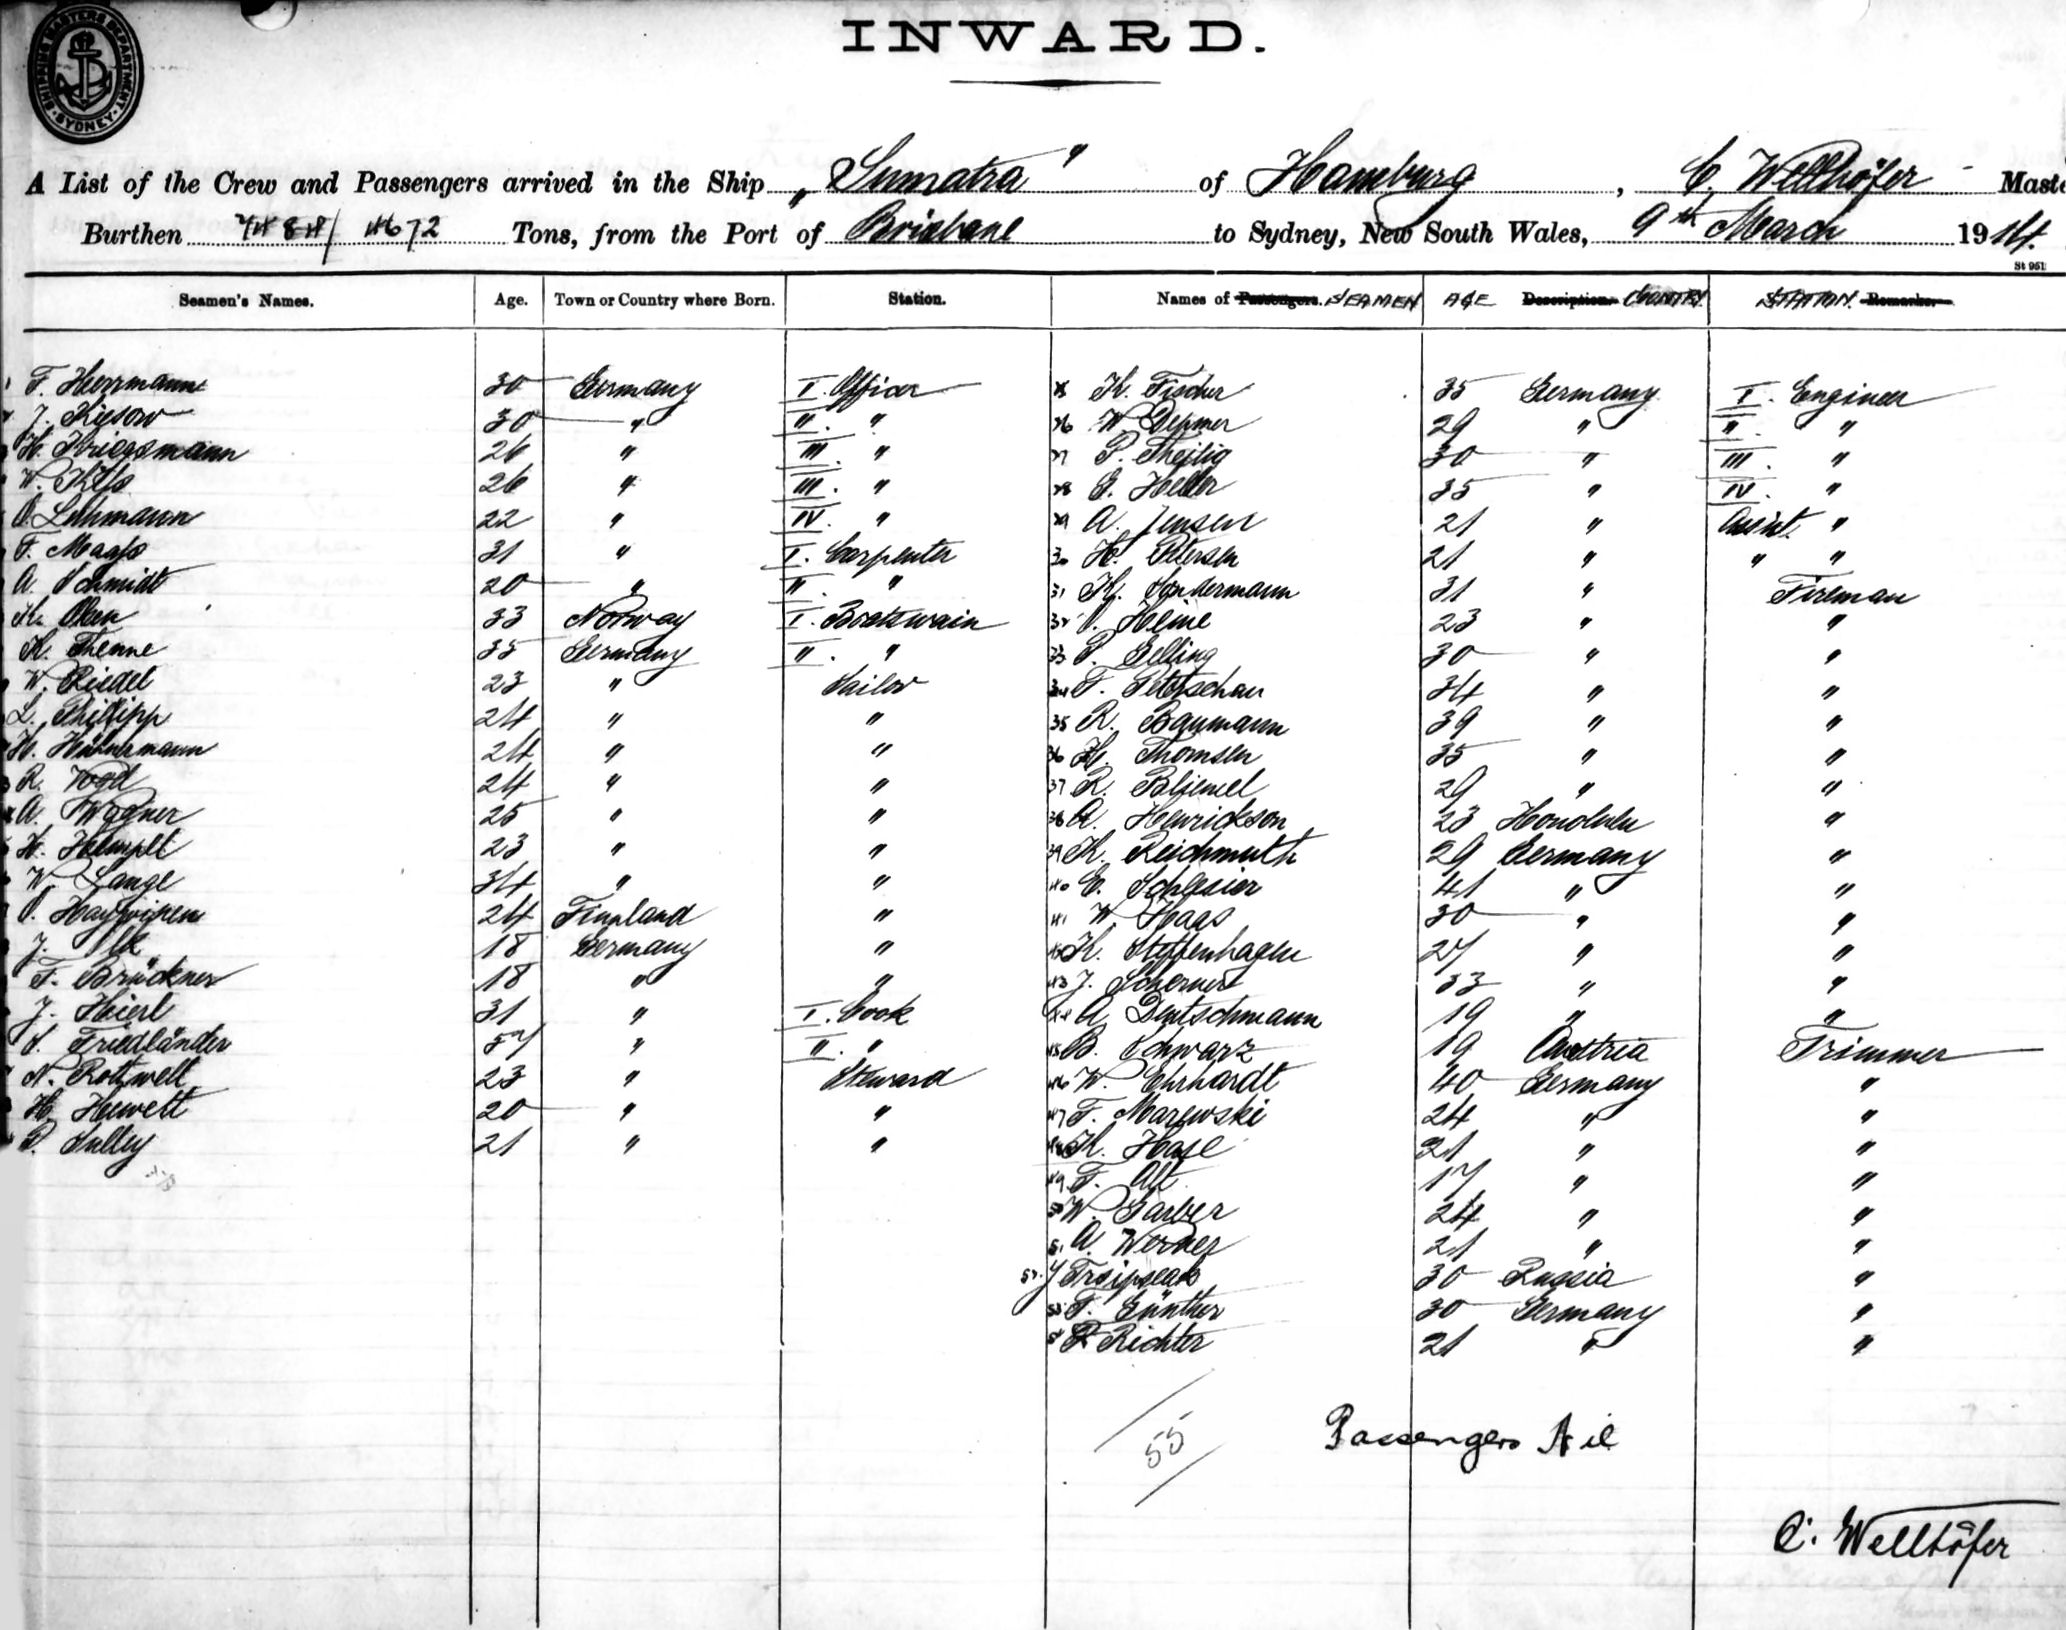 SHIPPING MASTERS DEPARTMENT · SYDNEY ·
INWARD.
A List of the Crew and Passengers arrived in the Ship „Sumatra" of Hamburg, C. Wellhöfer Maste
Burthen 7484/4672 Tons, from the Port of Brisbane to Sydney, New South Wales, 9th March 1914.
St 951
Seamen's Names. Age. Town or Country where Born. Station. Names of Passengers. SEAMEN AGE Description. COUNTRY STATION Remarks.
F. Herrmann 30 Germany I. Officer K. Fischer 35 Germany I. Engineer
J. Kiesow 30 " II. " 26 W. Depmer 29 " II. "
H. Kriegsmann 26 " III. " 27 P. Theilig 30 " III. "
W. 26 " III. " 28 G. Heller 35 " IV. "
O. Lehmann 22 " IV. " 29 A. Jensen 21 " Assist. "
F. Maass 31 " I. Carpenter 30 H. Petersen 21 " " "
A. Schmidt 20 " II. " 31 K. Sondermann 31 " Fireman
K. Olsen 33 Norway I. Boatswain 32 O. Heine 23 " "
K. Thenne 35 Germany II. " 33 P. Elling 30 " "
W. Riedel 23 " Sailor 34 F. 34 " "
L. Phillipp 24 " " 35 R. Baumann 39 " "
H. Hühnermann 24 " " 36 H. Thomsen 35 " "
R. Vogel 24 " " 37 R. Bliemel 29 " "
A. Wagner 25 " " 38 A. Henrickson 23 Honolulu "
H. Hempel 23 " " 39 K. Reichmuth 29 Germany "
W. Lange 34 " " 40 E. Schlesier 41 " "
24 Finnland " 41 W. Haas 30 " "
J. 18 Germany " 42 K. Steffenhagen 27 " "
F. Brückner 18 " " 43 J. Scherner 33 " "
J. Heierl 31 " I. Cook 44 A. Deutschmann 19 " "
S. Friedländer 57 " II. " 45 B. Schwarz 19 Austria Trimmer
N. Rottwelt 23 " Steward 46 W. Ehrhardt 40 Germany "
H. Hewett 20 " " 47 F. Marewski 24 " "
P. Sulley 21 " " 48 K. Hase 21 " "
49 F. Alt 17 " "
50 W. Garber 24 " "
51 A. Werner 21 " "
52. J 30 Russia "
53 F. Günther 30 Germany "
54 P. Richter 21 " "
55
Passengers Nil
C. Wellhöfer